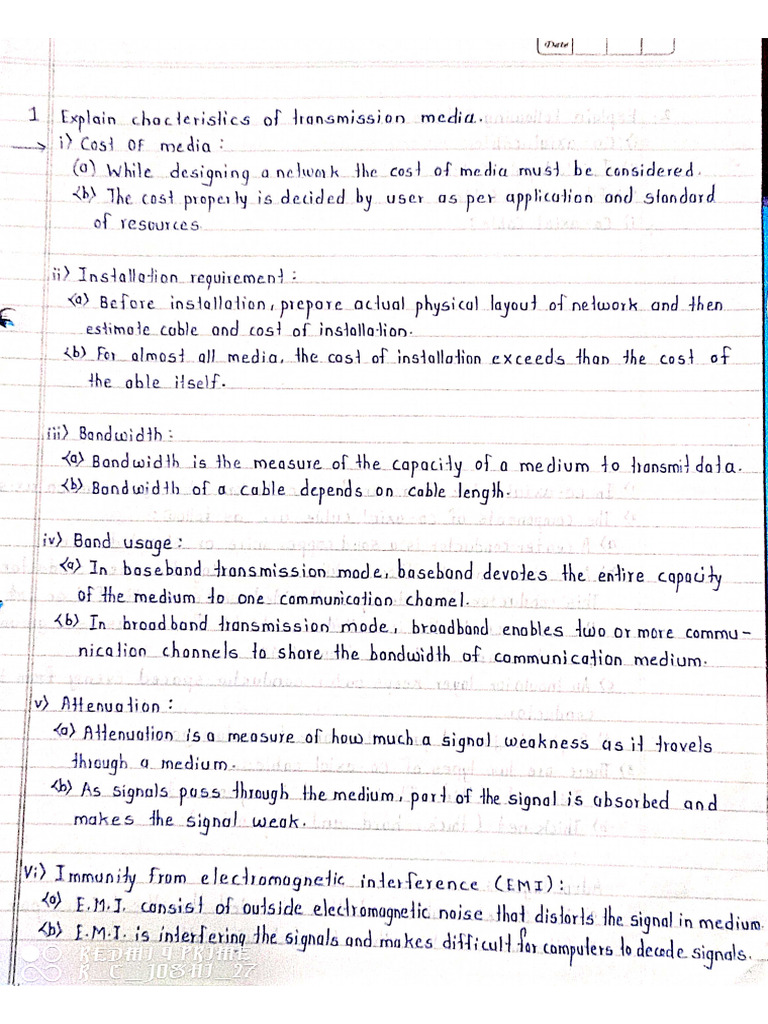 Date
1 Explain chacteristics of transmission media.
→ i) Cost of media :
(a) While designing a network the cost of media must be considered.
(b) The cost properly is decided by user as per application and standard
of resources
ii) Installation requirement :
(a) Before installation, prepare actual physical layout of network and then
estimate cable and cost of installation.
(b) For almost all media, the cost of installation exceeds than the cost of
the able itself.
iii) Bandwidth :
(a) Bandwidth is the measure of the capacity of a medium to transmit data.
(b) Bandwidth of a cable depends on cable length.
iv) Band usage :
(a) In baseband transmission mode, baseband devotes the entire capacity
of the medium to one communication channel.
(b) In broadband transmission mode, broadband enables two or more commu-
nication channels to share the bandwidth of communication medium.
v) Attenuation :
(a) Attenuation is a measure of how much a signal weakness as it travels
through a medium.
(b) As signals pass through the medium, part of the signal is absorbed and
makes the signal weak.
vi) Immunity from electromagnetic interference (EMI) :
(a) E.M.I. consist of outside electromagnetic noise that distorts the signal in medium.
(b) E.M.I. is interfering the signals and makes difficult for computers to decode signals.
REDMI 9 PRIME
R_C__JOSHI_27